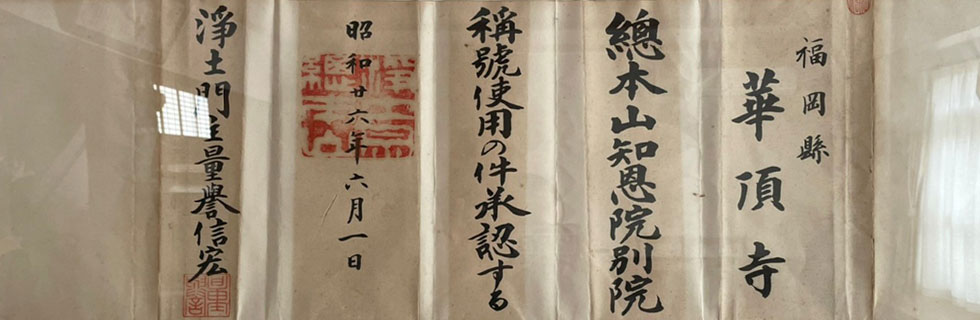 福岡縣
華頂寺
總本山知恩院別院
稱號使用の件承認する
昭和廿六年六月一日
淨土門主量譽信宏